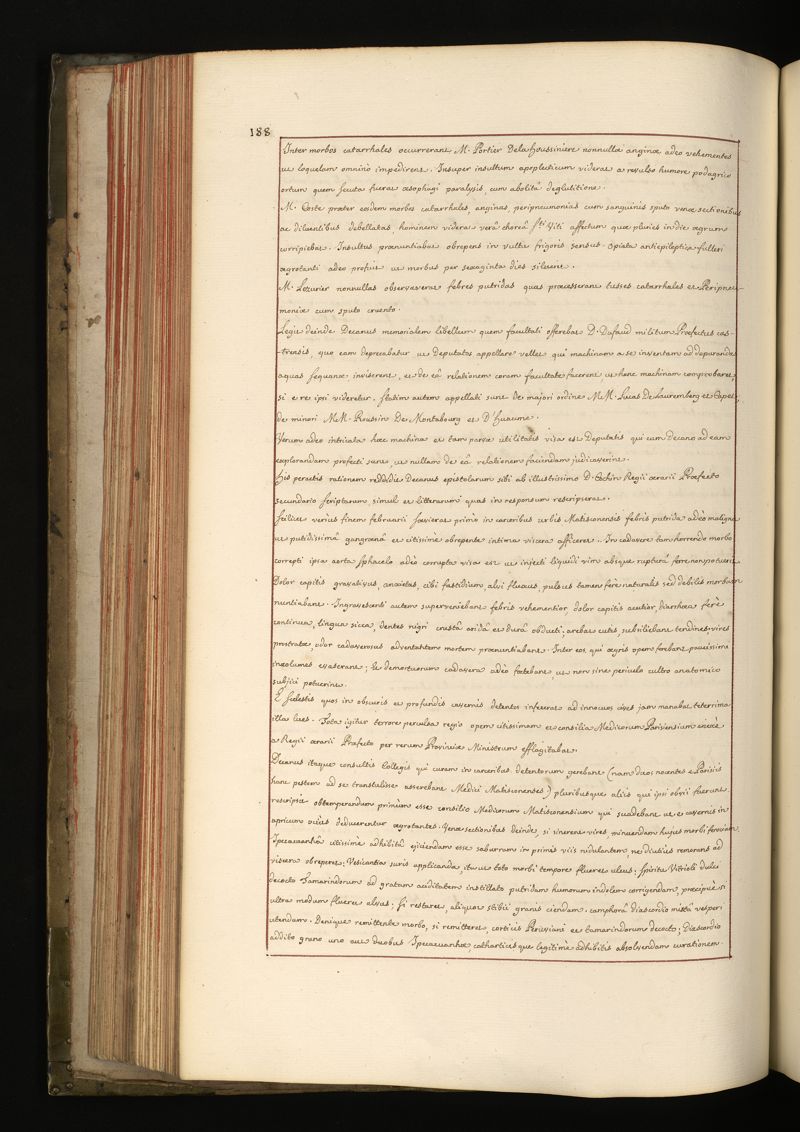 188
Inter morbos catarrhales occurrerant M. Portier Dela houssiniere nonnullæ anginæ adeo vehementes
ut loquelam omnino impedirent. Insuper insultum apoplecticum viderat a revulso humore podagrico
ortum quem secuta fuerat œsophagi paralysis, cum abolitâ deglutitione.
M. Coste præter eosdem morbos catarrhales, anginas, peripneumonias cum sanguinis sputo venæ sectionibus
ac diluentibus debellatas, hominem viderat verâ choreâ Sti Viti affectum quæ pluries in die ægrum
corripiebat. Insultus prænuntiabat obrepens in vultu frigoris sensus. Opiata antiepileptica fulleri
ægrotanti adeo profuit ut morbus per sexaginta dies siluerit.
M. Lezurier nonnullas observaverat febres putridas quas præcesserant tusses catarrhales et Peripneu-
moniæ cum sputo cruento.
Legit deinde Decanus memorialem libellum quem facultati offerebat D. Dufaud militum Præfectus cas-
-trensis, quo eam deprecabatur ut Deputatos appellare vellet qui machinam a se inventam ad depurandas
aquas sequanæ inviserent, et de eâ relationem coram facultate facerent ut hanc machinam comprobaret,
si e re ipsi videretur. Statim autem appellati sunt de majori ordine MM. Lucas De Lauremberg et Capet,
de minori MM. Roussin De Montabourg et D'huaume.
Verum adeo intricata hæc machina et tam parvæ utilitatis visa est Deputatis qui cum Decano ad eam
explorandam profecti sunt, ut nullam de eâ relationem faciendam judicaverint.
His peractis rationem reddidit Decanus epistolarum sibi ab illustrissimo D. Cochin Regii ærarii Præfecto
secundario scriptarum, simul et litterarum quas in responsum rescripserat.
Scilicet versus finem februarii sævierat primò in carceribus urbis Matisconensis febris putrida adeò maligna
ut putidissimâ gangrænâ et citissimè obrepente intima viscera afficeret. In cadavere tam horrendo morbo
correpti ipsa aorta sphacelo adeò corrupta visa est ut injecti liquidi vim absque rupturâ ferre non potuerit.
Dolor capitis gravativus, anxietas, cibi fastidium, alvi fluxus, pulsus tamen ferè naturalis sed debilis morbum
nuntiabant. Ingravescenti autem superveniebant febris vehementior, dolor capitis acutior, diarrhœa ferè
continua, lingua sicca, dentes nigri crustâ aridâ et durâ obducti, arebat cutis, subsiliebant tendines, vires
prostratæ, odor cadaverosus adventantem mortem prænuntiabant. Inter eos, qui ægris opem ferebant, paucissimi
incolumes evaserant; Et demortuorum cadavera adeò fœtebant, ut non sine periculo cultro anatomico
subjici potuerint.
E scelestis quos in obscuris et profundis cavernis detentos infecerat ad innocuos cives jam manabat teterrima
illa lues. Tota igitur terrore perculsa regio opem citissimam et consilia Medicorum Parisiensium enixè
a Regii ærarii Præfecto per rerum Provinciæ Ministrum efflagitabat.
Decanus itaque consultis Collegis qui curam in carceribus detentorum gerebant (nam duos nocentes e Parisiis
hanc pestem ad se transtulisse asserebant Medici Matisconenses) pluribusque aliis qui ipsi obvii fuerunt,
rescripsit obtemperandum primùm esse consilio Medicorum Matisconensium qui suadebant ut e cavernis in
apricum ocius deducerentur ægrotantes. Venæ sectionibus deinde, si sinerent vires, minuendam hujus morbi ferociam,
Ipecacuanhâ citissimè adhibitâ ejiciendam esse saburram in primis viis nidulantem, ne diutiùs remorans ad
viscera obreperet; Vesicantia suris applicanda, ita ut toto morbi tempore flueret ulcus; Spiritu Vitrioli dulci
decocto Tamarindorum ad gratam aciditatem instillato putridam humorum indolem corrigendam, præcipuè si
ultra modum flueret alvus; si restaret, aliquot stibii granis ciendam. camphorâ diascordio mistâ vesperi
utendum. Denique remittente morbo, si remitteret, corticis Peruviani et tamarindorum decocto; Diascordio
addito grano uno aut duobus Ipecacuanhæ, catharticisque legitimè adhibitis absolvendam curationem.